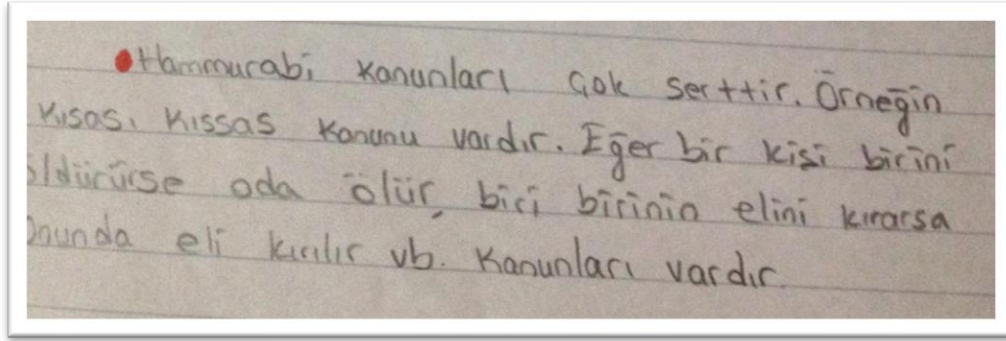 •Hammurabi Kanunları Çok serttir. Örneğin
Kısas, Kıssas Kanunu vardır. Eğer bir kişi birini
öldürürse oda ölür, biri birinin elini kırarsa
Onunda eli kırılır vb. Kanunları vardır.